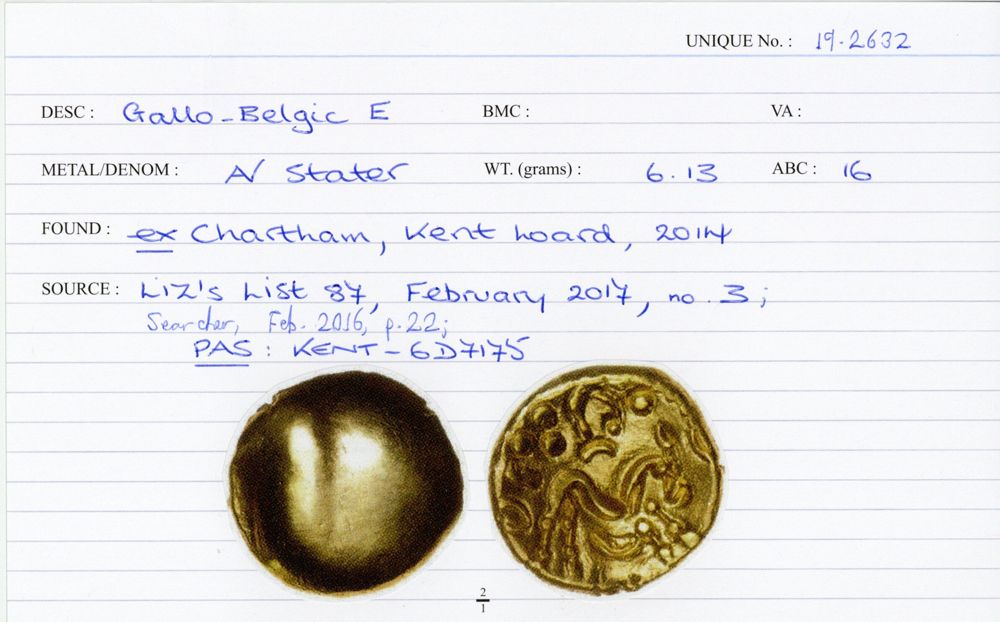 UNIQUE No. : 19.2632
DESC : Gallo-Belgic E BMC : VA :
METAL/DENOM : A/ Stater WT. (grams) : 6.13 ABC : 16
FOUND : ex Chartham, Kent hoard, 2014
SOURCE : Liz's List 87, February 2017, no. 3;
Searcher, Feb. 2016, p.22;
PAS : KENT-6D7175
2
1